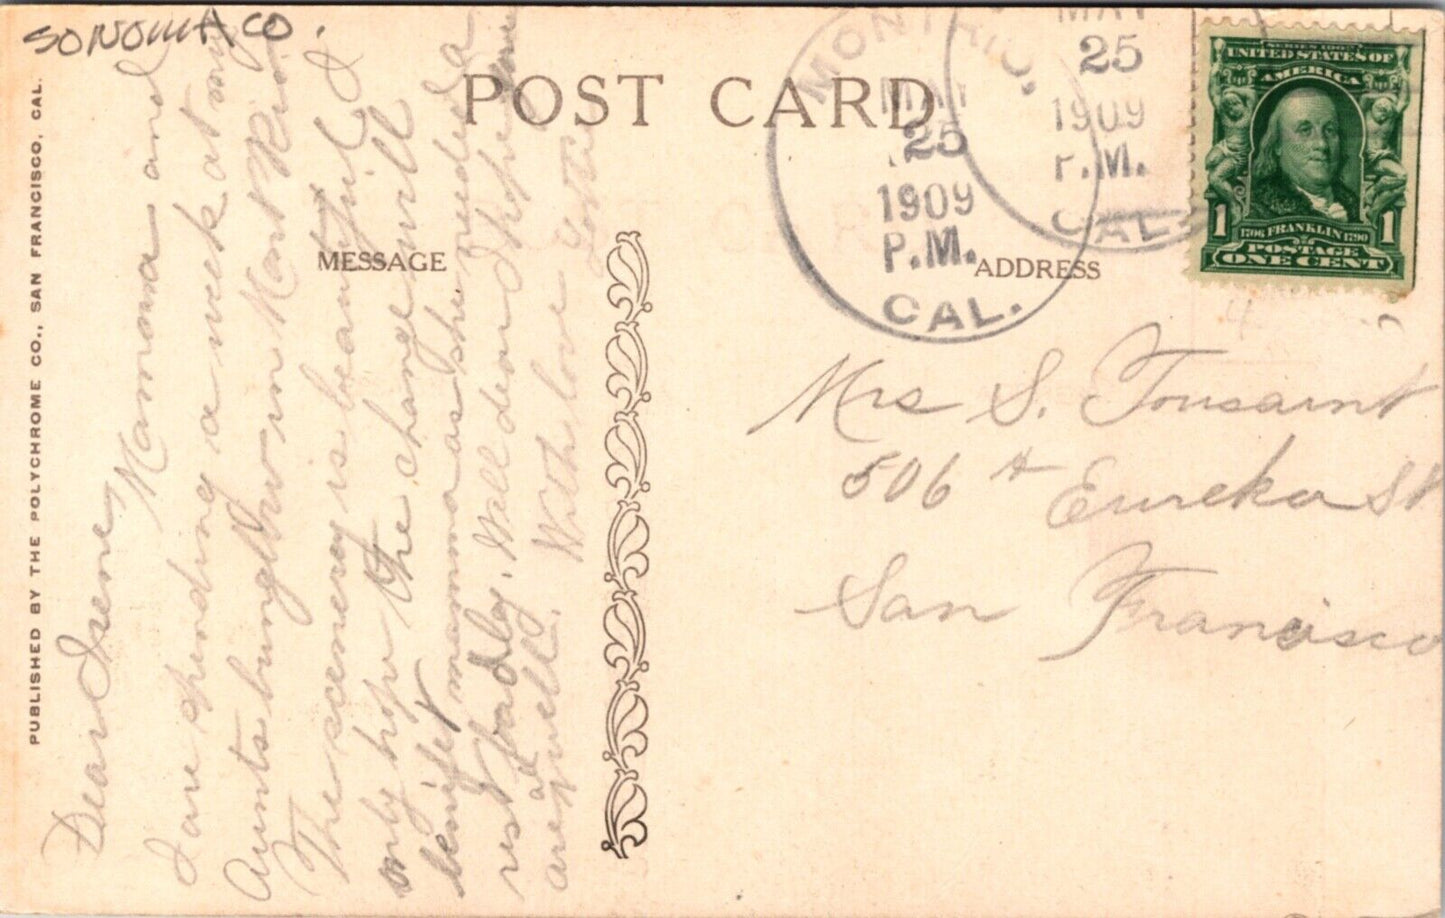 SONOMA CO.
POST CARD
MESSAGE
ADDRESS
PUBLISHED BY THE POLYCHROME CO., SAN FRANCISCO, CAL.
MONT RIO.
MAY
25
1909
P.M.
CAL.
MAY
25
1909
P.M.
CAL.
SERIES 1902
UNITED STATES OF
AMERICA
1706 FRANKLIN 1790
POSTAGE
1 1
ONE CENT
Mrs S. Tousaint
506 A Eureka St
San Francisco
Dear Irene,
Mamma and
I are spending a week at my
Aunts bunglow in Mont Rio.
The scenery is beautiful I
only hope the change will
benifet mamma as she needed a
rest badly. Well dear I hope
all are well.
With love